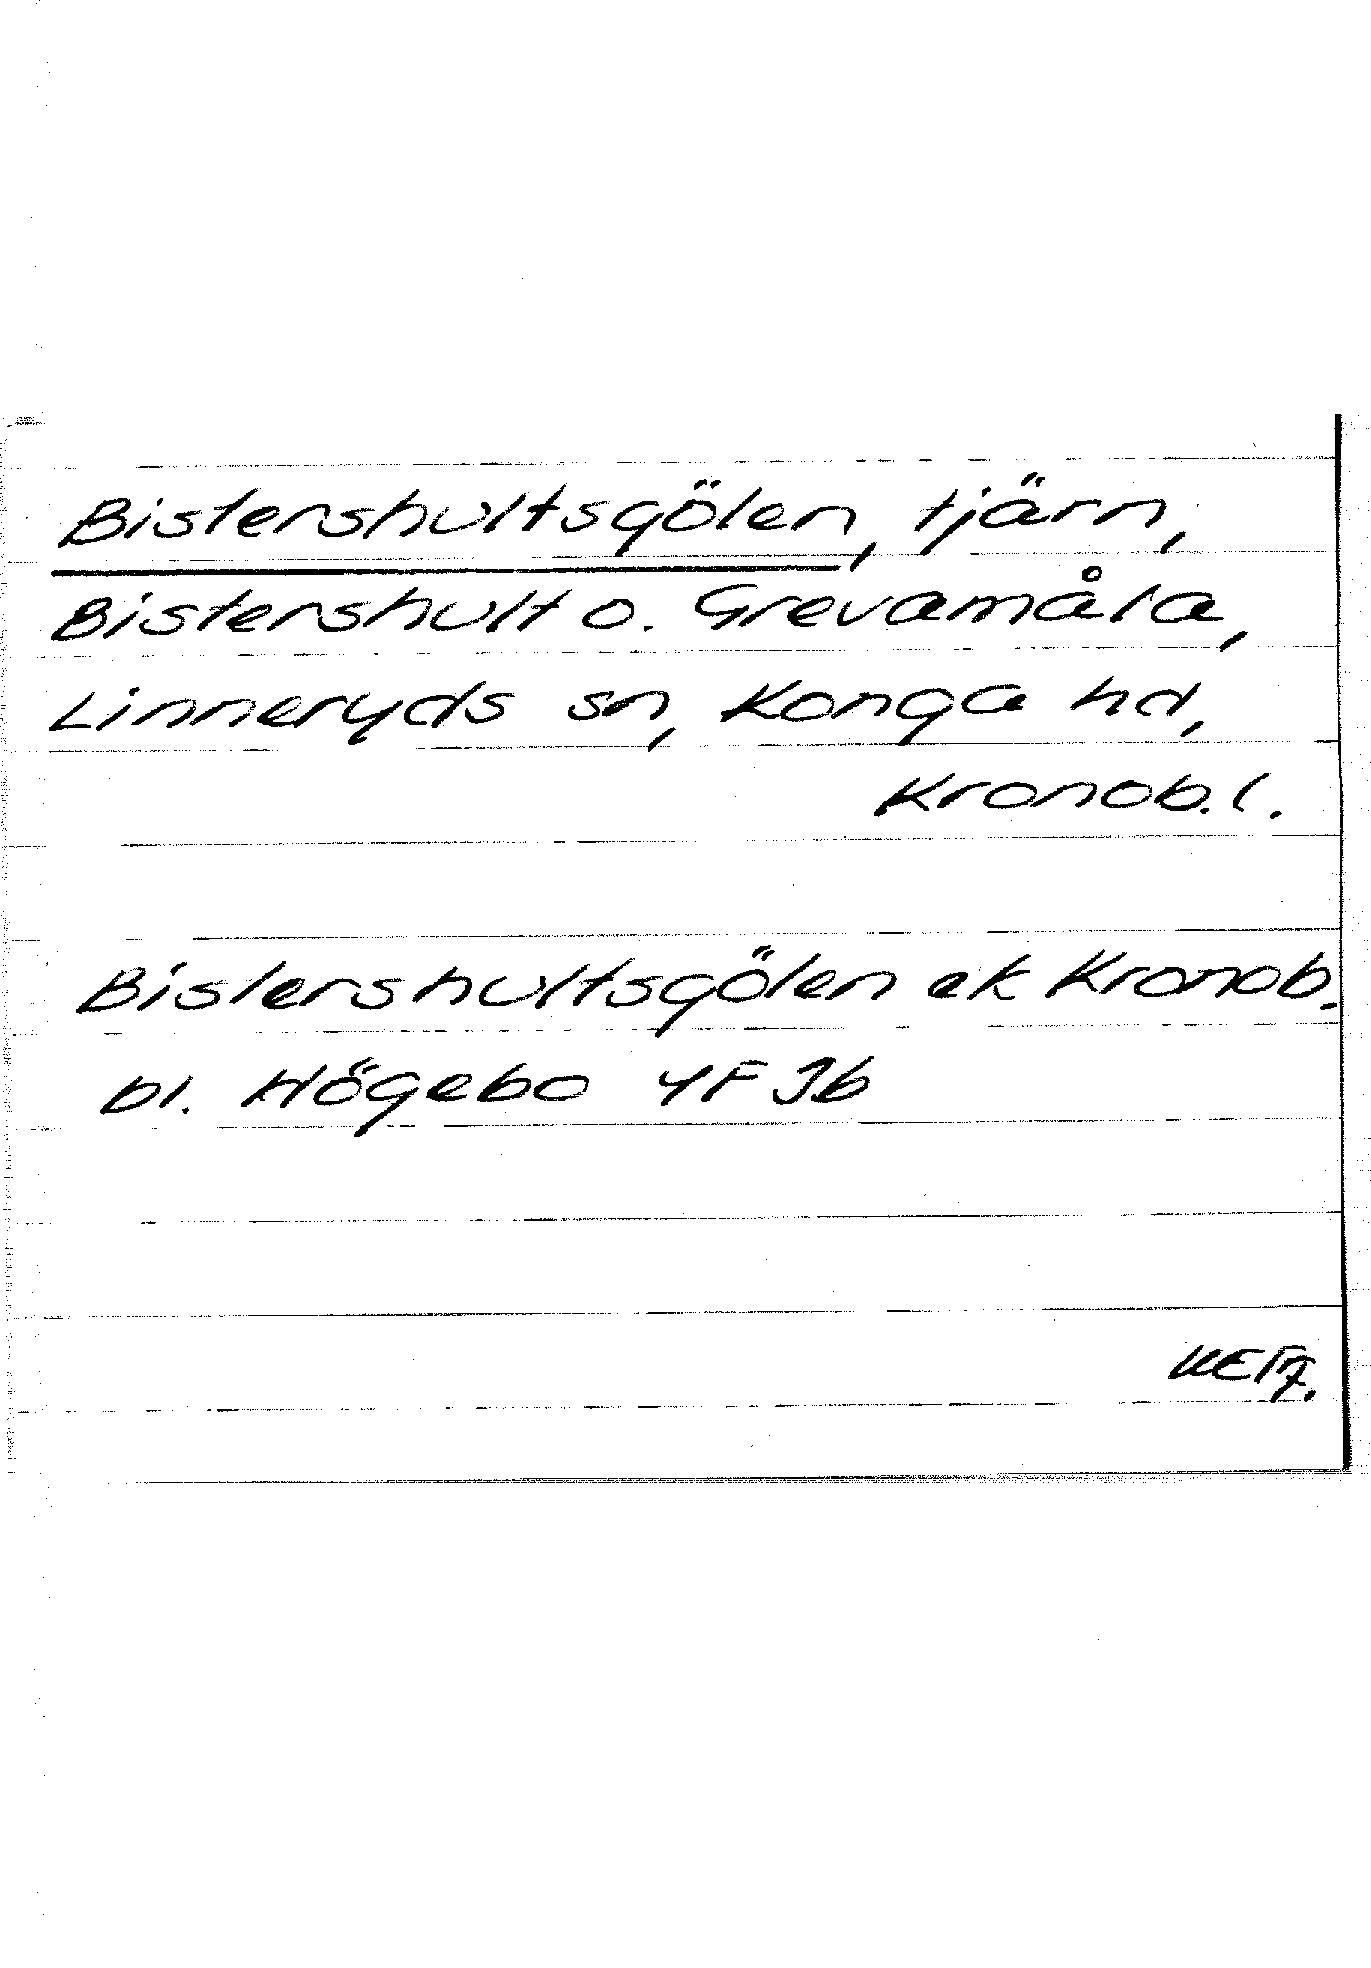 Bistershultsgölen, tjärn,
Bistershult o. Grevamåla,
Linneryds sn, Konga hd,
Kronob. l.
Bistershultsgölen ek Kronob.
bl. Högebo 4F 3b